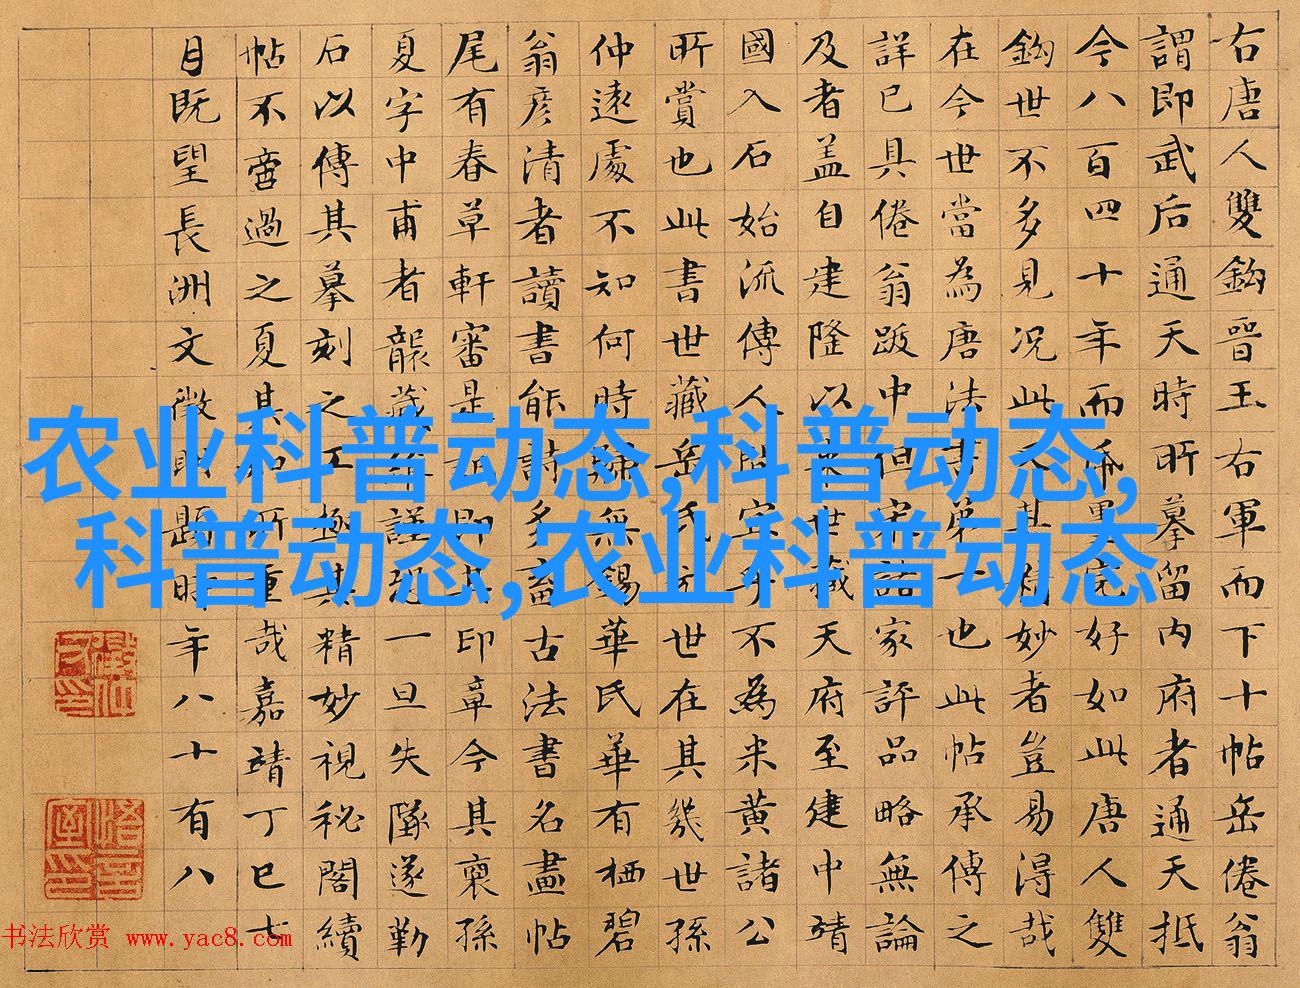 右唐人雙鈎晉王右軍而下十帖岳倦翁
謂即武后通天時所摹留內府者通天抵
今八百四十年而紙墨完好如此唐人雙
鈎世不多見況此又其妙者豈易得哉
在今世當為唐法書第一也此帖承傳之
詳已具倦翁跋中但宋諸家評品略無論
及者盖自建隆以来世藏天府至建中靖
國入石始流傳人間宜乎不為米黃諸公
所賞也此書世藏岳氏元世在其幾世孫
仲遠處不知何時歸無錫華氏華有栖碧
翁彦清者讀書能詩多畜古法書名畫帖
尾有春草軒審是即其印章今其裔孫
夏字中甫者襲藏惟謹恐一旦失墜遂勒
石以傳其摹刻之工極其精妙視秘閣續
帖不啻過之夏其知所重哉嘉靖丁巳七
月既望長洲文徵明題時年八十有八
农业科普动态,科普动态,
科普动态,农业科普动态
书法欣赏 www.yac8.com